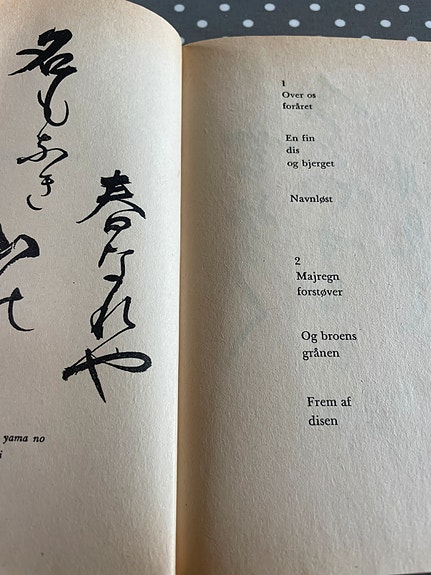 春なれや
名もなき
yama no
i
1
Over os
foråret
En fin
dis
og bjerget
Navnløst
2
Majregn
forstøver
Og broens
grånen
Frem af
disen